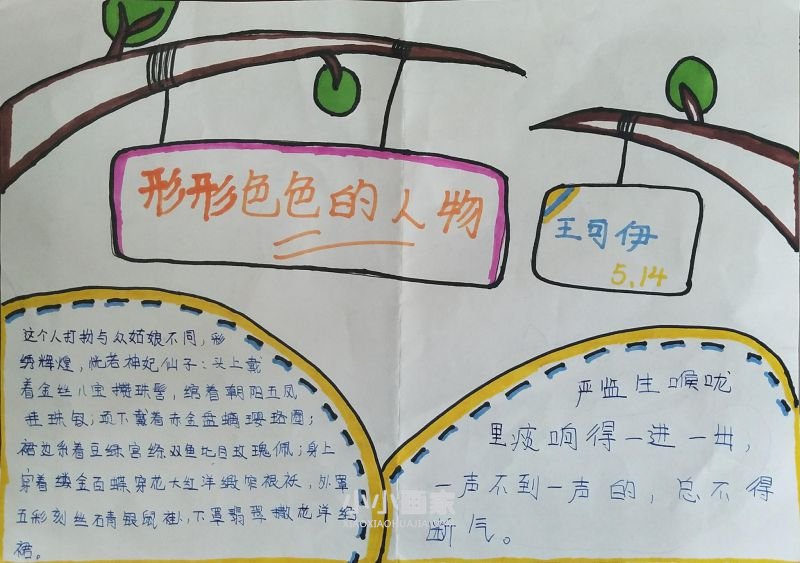 形形色色的人物
王可伊
5.14
这个人打扮与众姑娘不同,彩
绣辉煌,恍若神妃仙子:头上戴
着金丝八宝攒珠髻,绾着朝阳五凤
挂珠钗;项下戴着赤金盘螭璎珞圈;
裙边系着豆绿宫绦双鱼比目玫瑰佩;身上
穿着缕金百蝶穿花大红洋缎窄裉袄,外罩
五彩刻丝石青银鼠褂,下罩翡翠撒花洋绉
裙。
严监生喉咙
里痰响得一进一出,
一声不到一声的,总不得
断气。
小小画家
XIAOXIAOHUAJIA